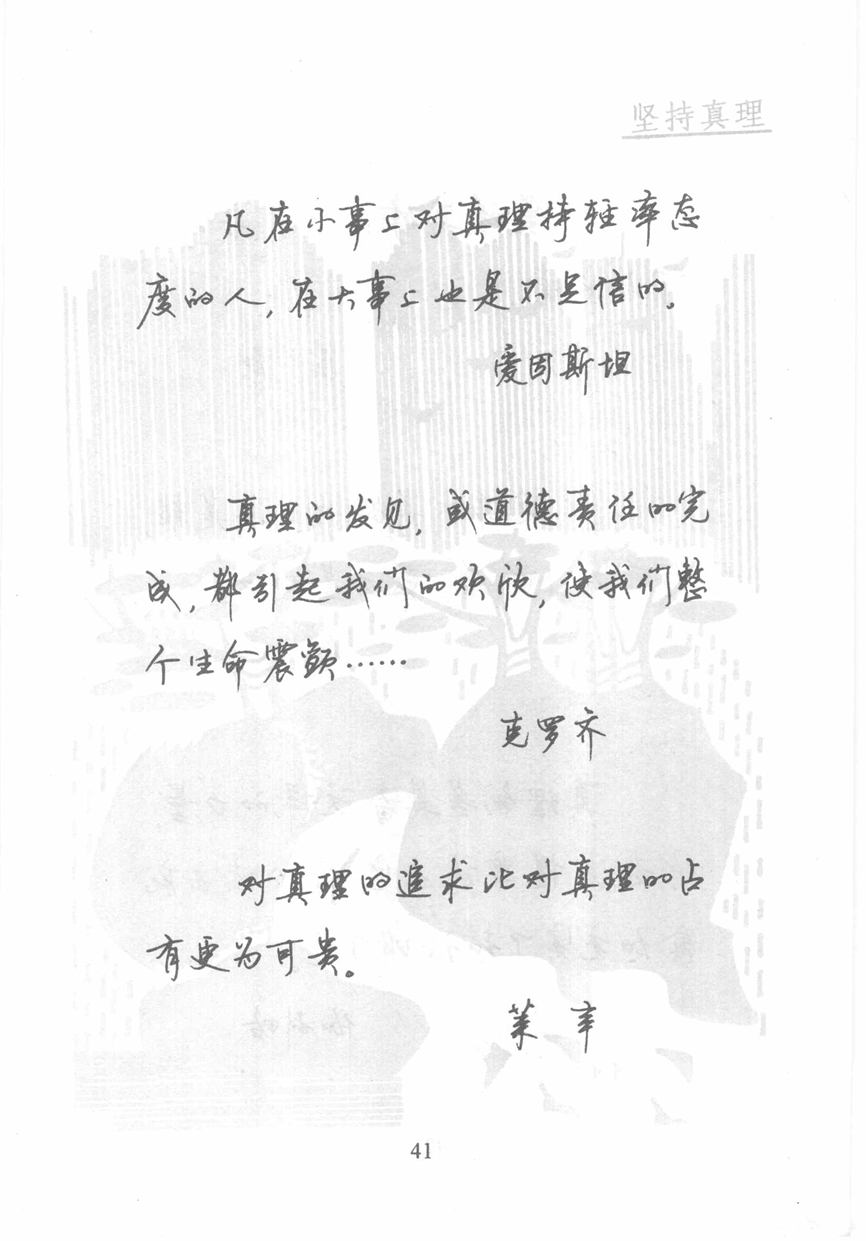 坚持真理
凡在小事上对真理持轻率态
度的人，在大事上也是不足信的。
爱因斯坦
真理的发见，或道德责任的完
成，都引起我们的欢欣，使我们整
个生命震颤……
克罗齐
对真理的追求比对真理的占
有更为可贵。
莱辛
41